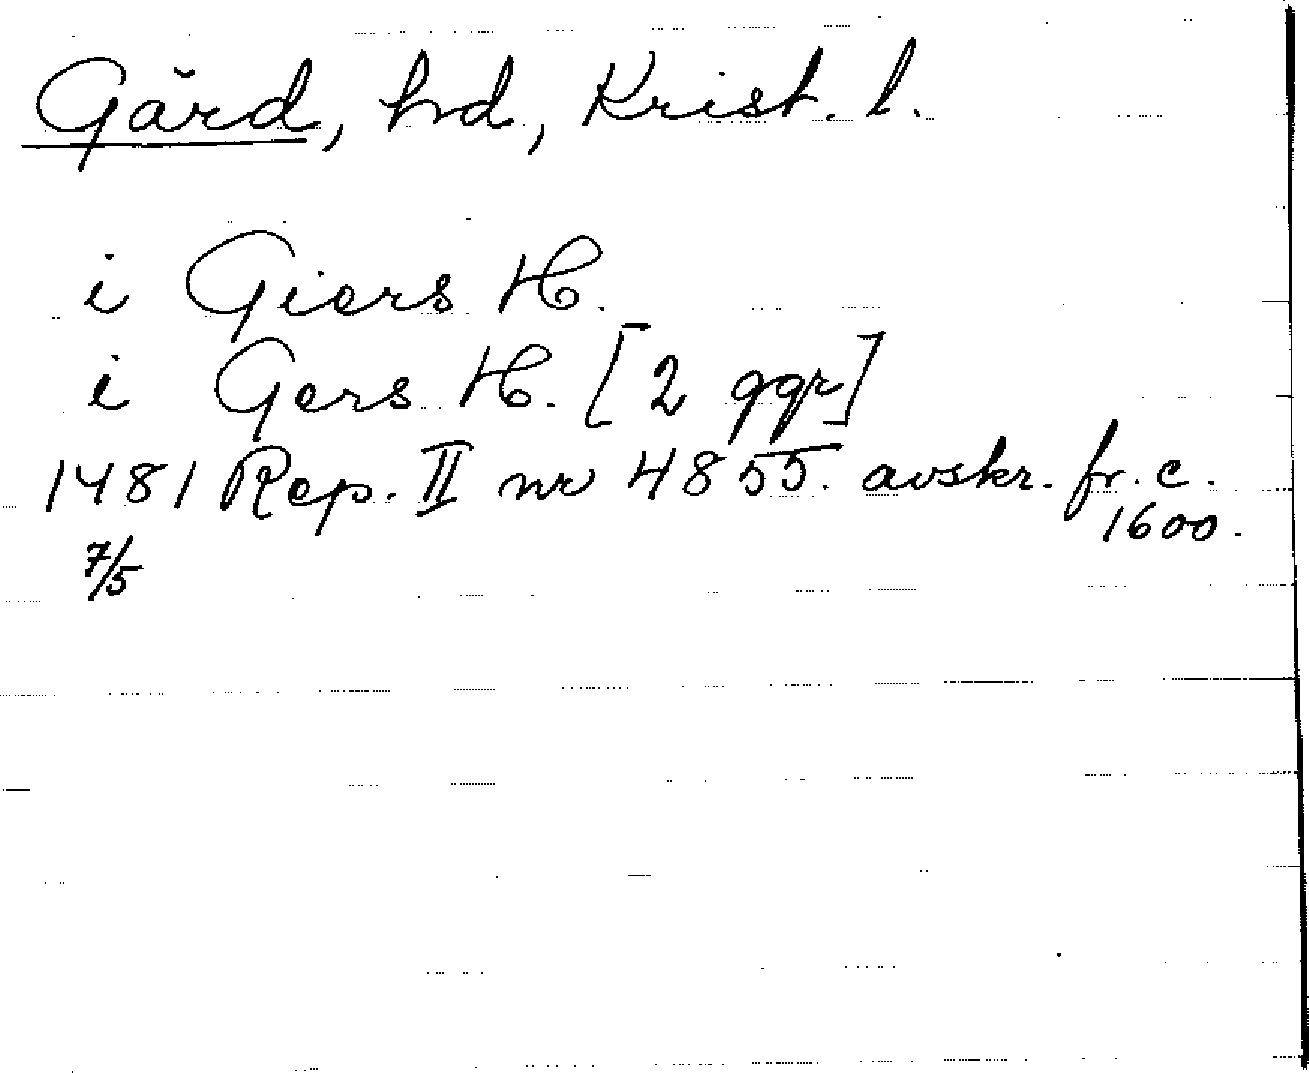 Gärd, hd, Krist. l.
i Giers H.
i Gers H. [2 ggr]
1481 Rep. II nr 4855. avskr. fr. c.
1600.
7/5